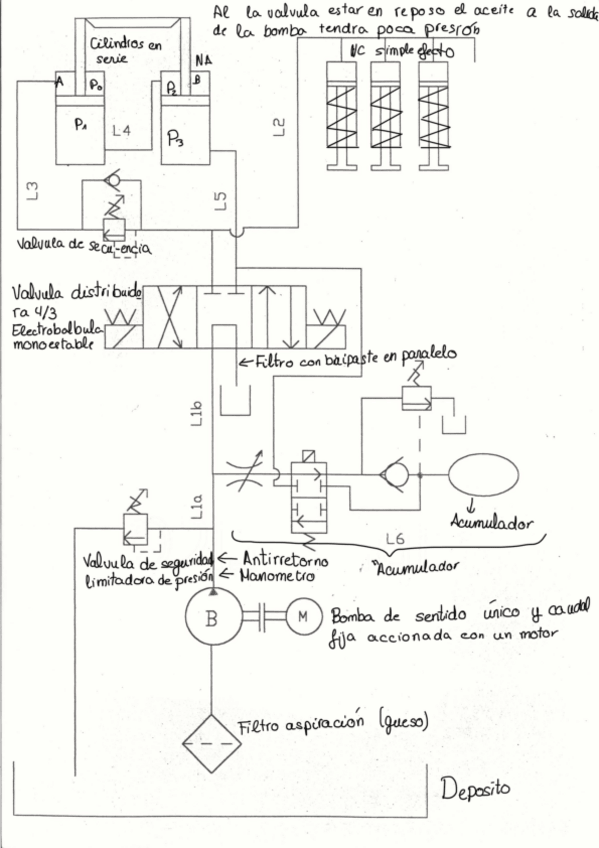 Al la valvula estar en reposo el aceite a la salida
de la bomba tendra poca presión
Cilindros en
serie
NA
VC simple efecto
A
P0
P2
B
P1
L4
P3
L2
L3
L5
Valvula de secuencia
Valvula distribuido
ra 4/3
Electrobalbula
monoestable
Filtro con baipaste en paralelo
L1b
L1a
Acumulador
L6
Valvula de seguridad
limitadora de presión
Antirretorno
Manometro
"Acumulador
B
M
Bomba de sentido único y caudal
fija accionada con un motor
Filtro aspiración (gueso)
Deposito